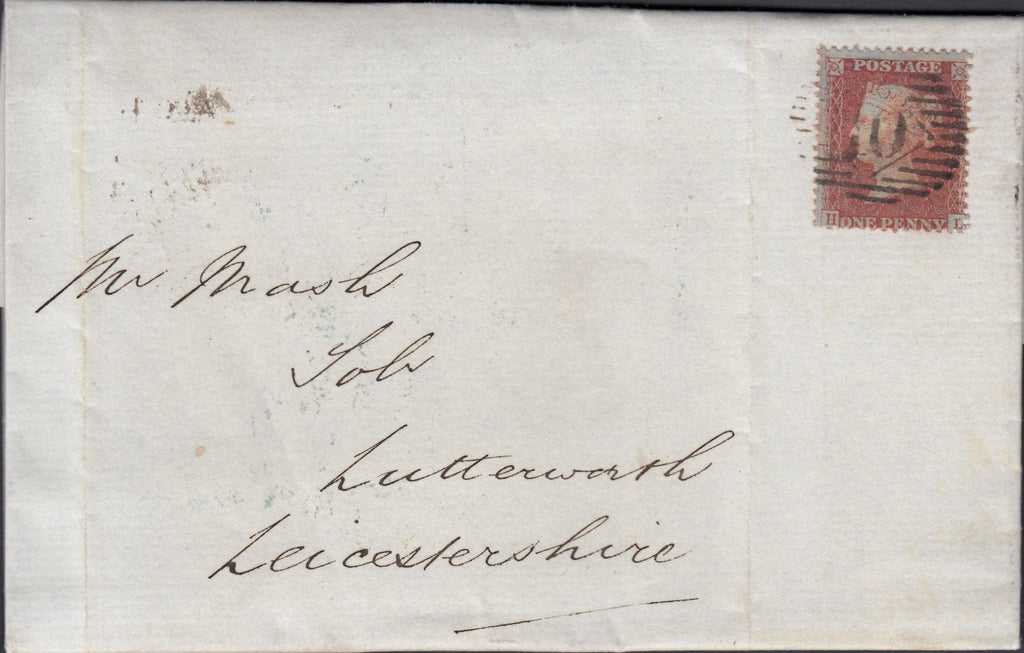 POSTAGE
ONE PENNY
H L
Mr Mash
Solr
Lutterworth
Leicestershire